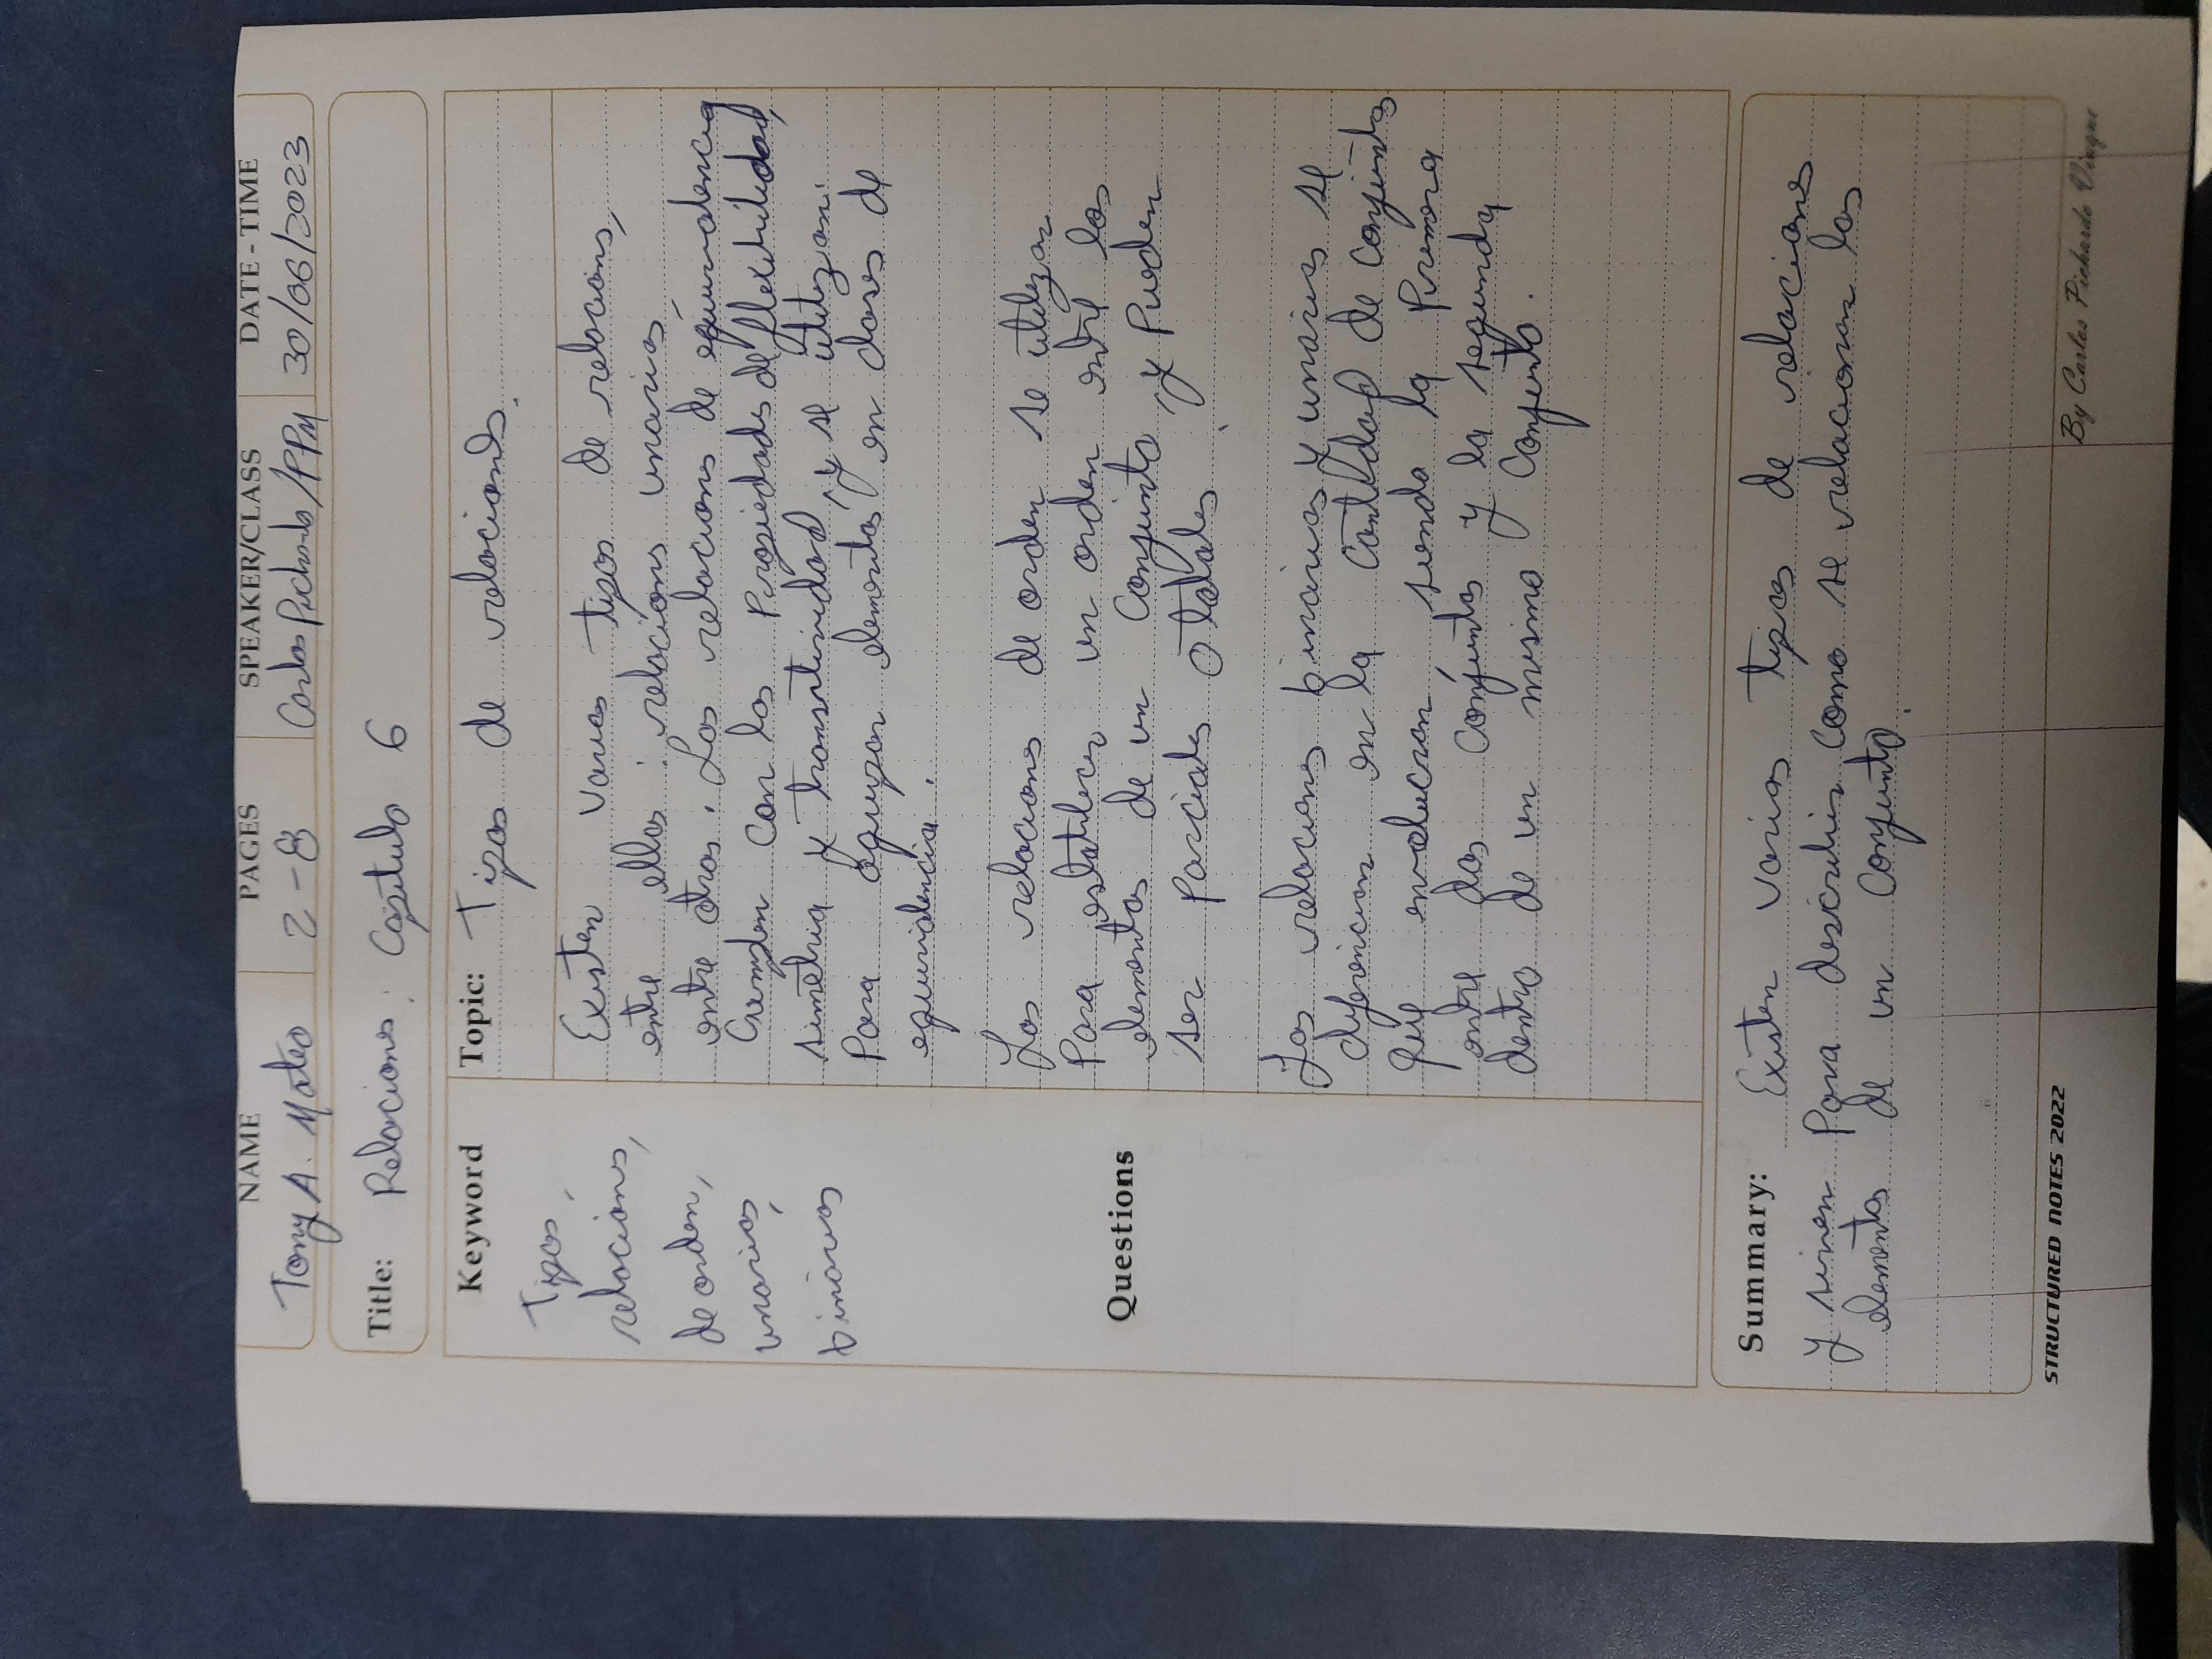 NAME PAGES SPEAKER/CLASS DATE - TIME
Tony A. Mateo 2-8 Carlos Pichardo /PPM 30/06/2023
Title: Relaciones: Capitulo 6
Keyword
Tipos,
relaciones,
de orden,
unarias,
binarias
Questions
Topic: Tipos de relaciones.
Existen varios tipos de relacions,
entre ellas: relacions unarias,
entre otras. Las relaciones de equivalencia
Cumplen con las propiedades de flexibilidad,
simetria y transitividad, y se utilizan
Para agrupar elementos en clases de
equivalencia.
Las relaciones de orden se utilizan
Para establecer un orden entre los
elementos de un Conjunto, y pueden
ser parciales o totales.
Las relaciones binarias y unarias se
diferencian en la cantidad de conjuntos
que envolucran, siendo la primera
entre dos conjuntos y la segunda
dentro de un mismo conjunto.
Summary: Existen varios tipos de relaciones
y sirven para describir como se relacionan los
elementos de un conjunto.
STRUCTURED NOTES 2022
By Carlos Pichardo Viuque